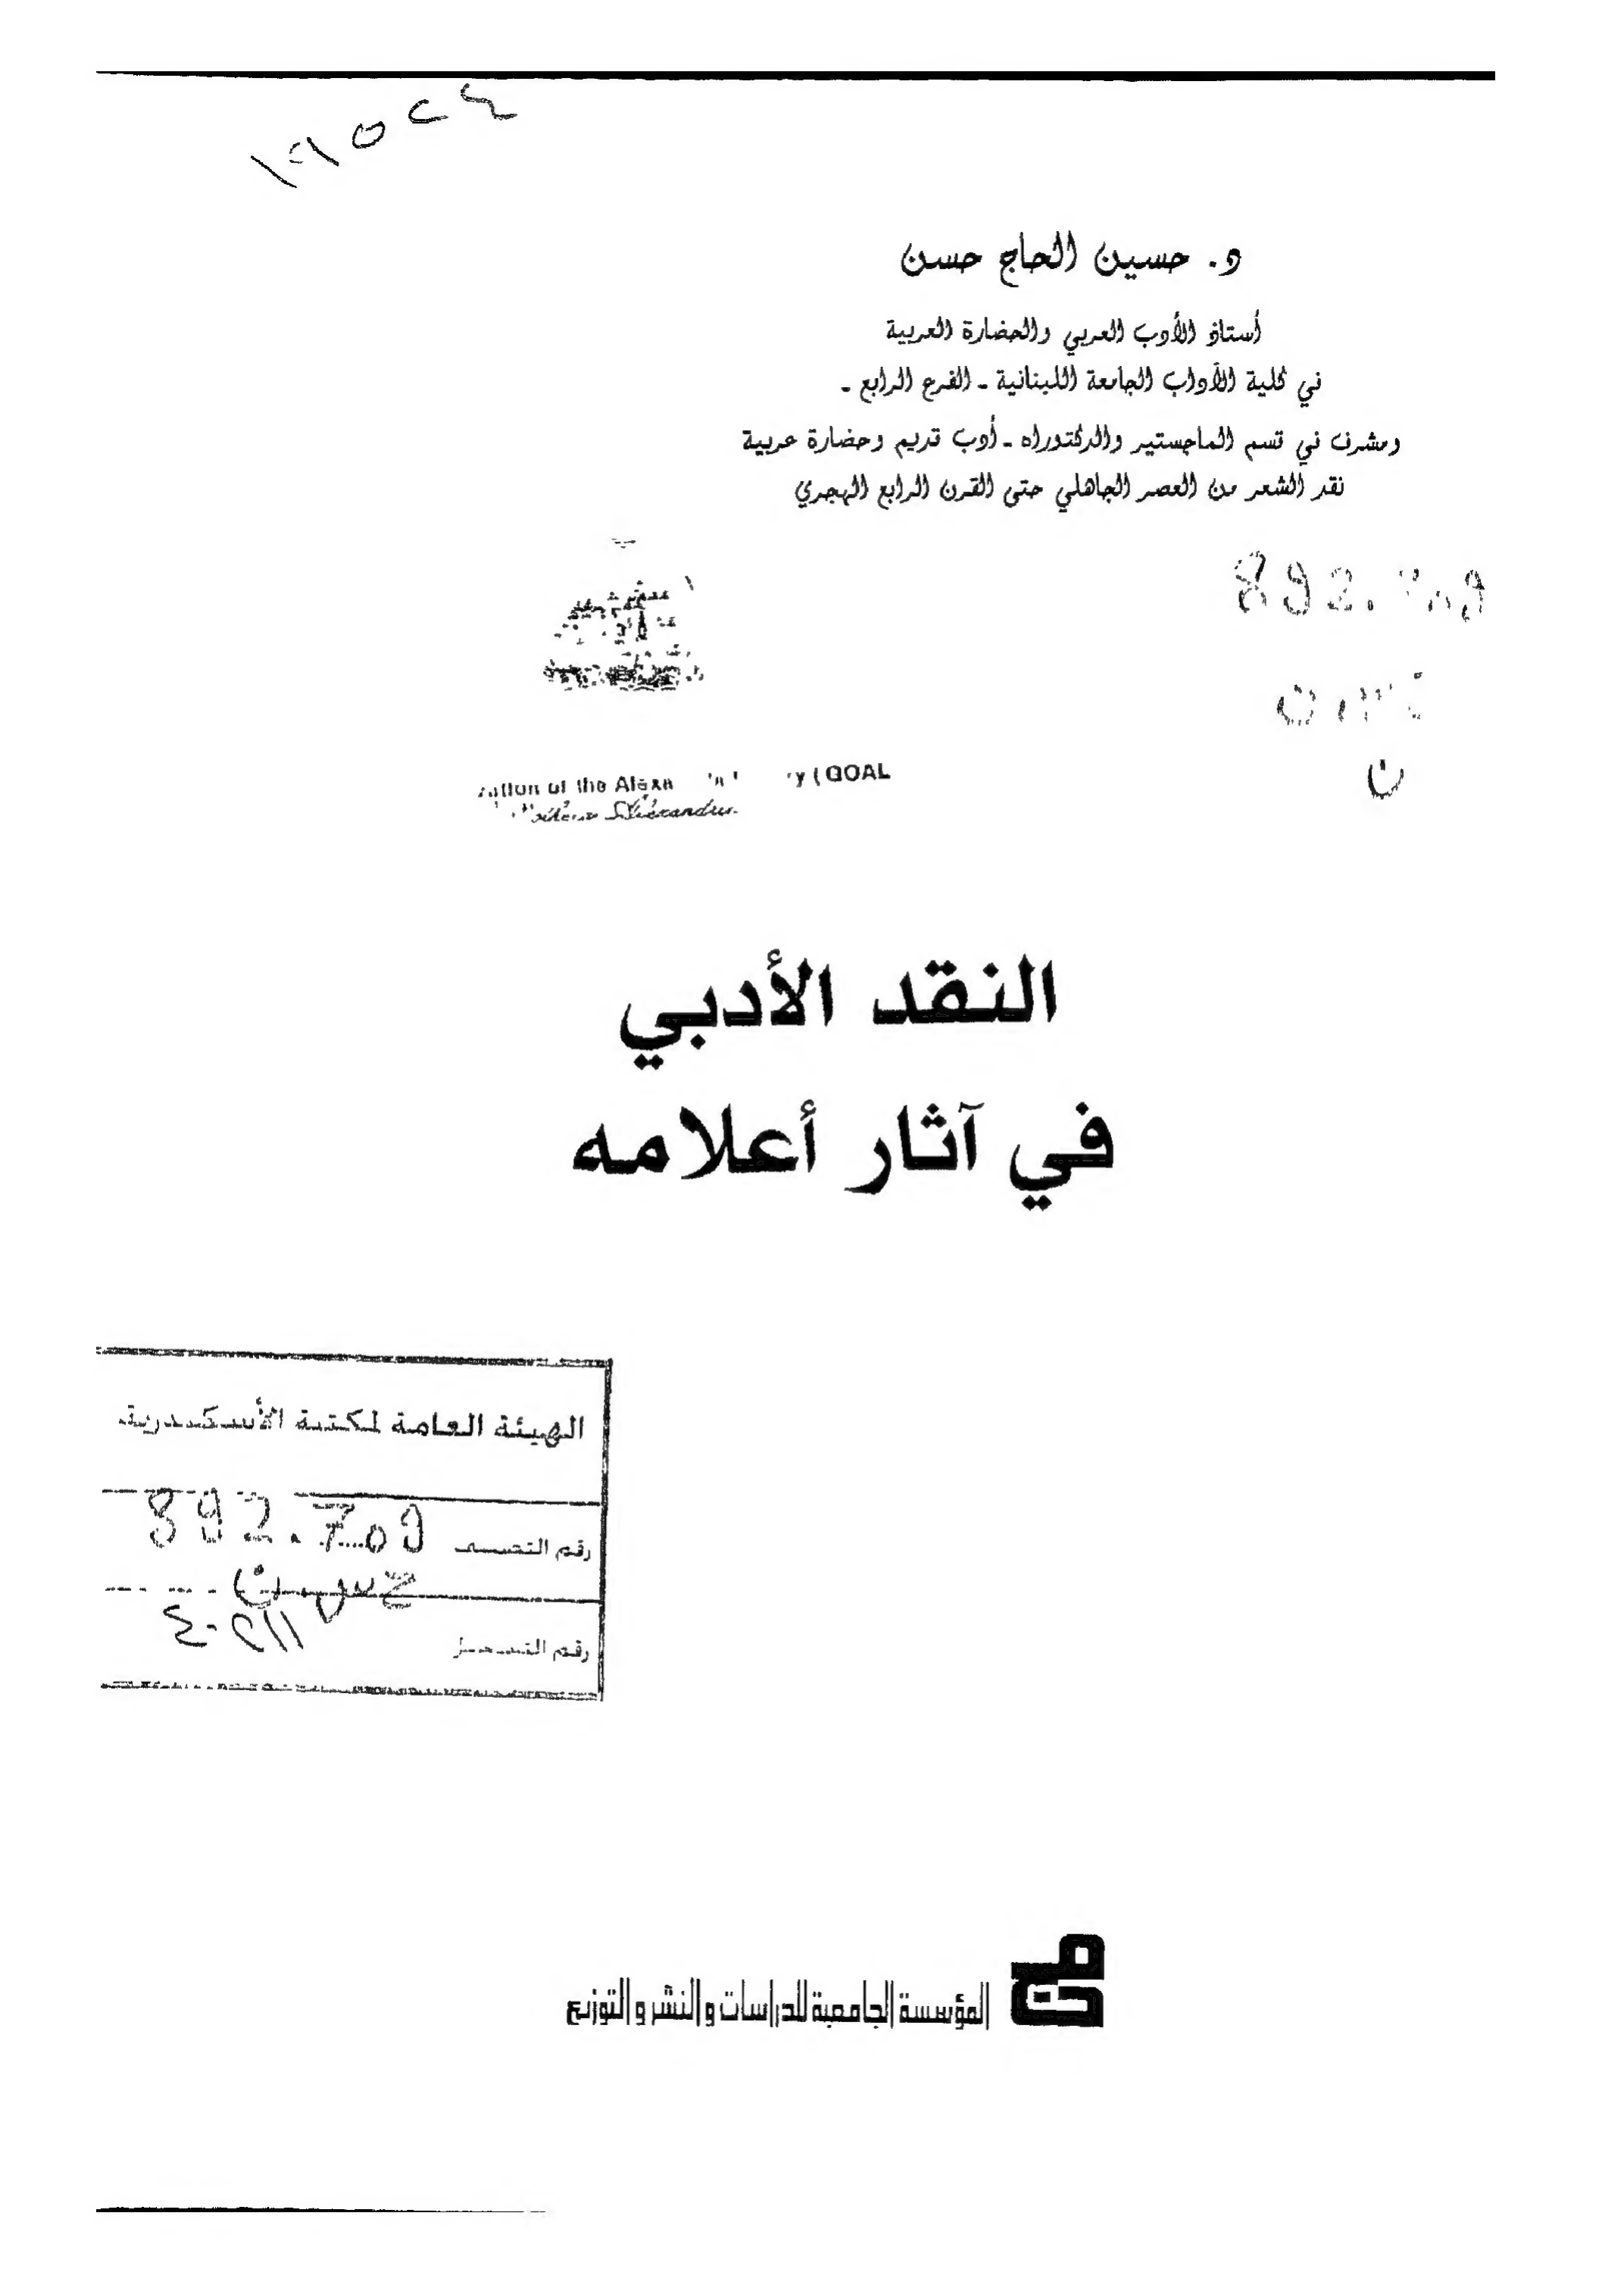 د. حسين الحاج حسن
أستاذ الأدب العربي والحضارة العربية
في كلية الآداب الجامعة اللبنانية - الفرع الرابع -
ومشرف في قسم الماجستير والدكتوراه - أدب قديم وحضارة عربية
نقد الشعر من العصر الجاهلي حتى القرن الرابع الهجري
892.709
ن
of the Alexa
(GOAL
النقد الأدبي
في آثار أعلامه
الهيئة العامة لمكتبة الأسكندرية
رقم 892.709
ح س ن
رقم
المؤسسة الجامعية للدراسات والنشر والتوزيع